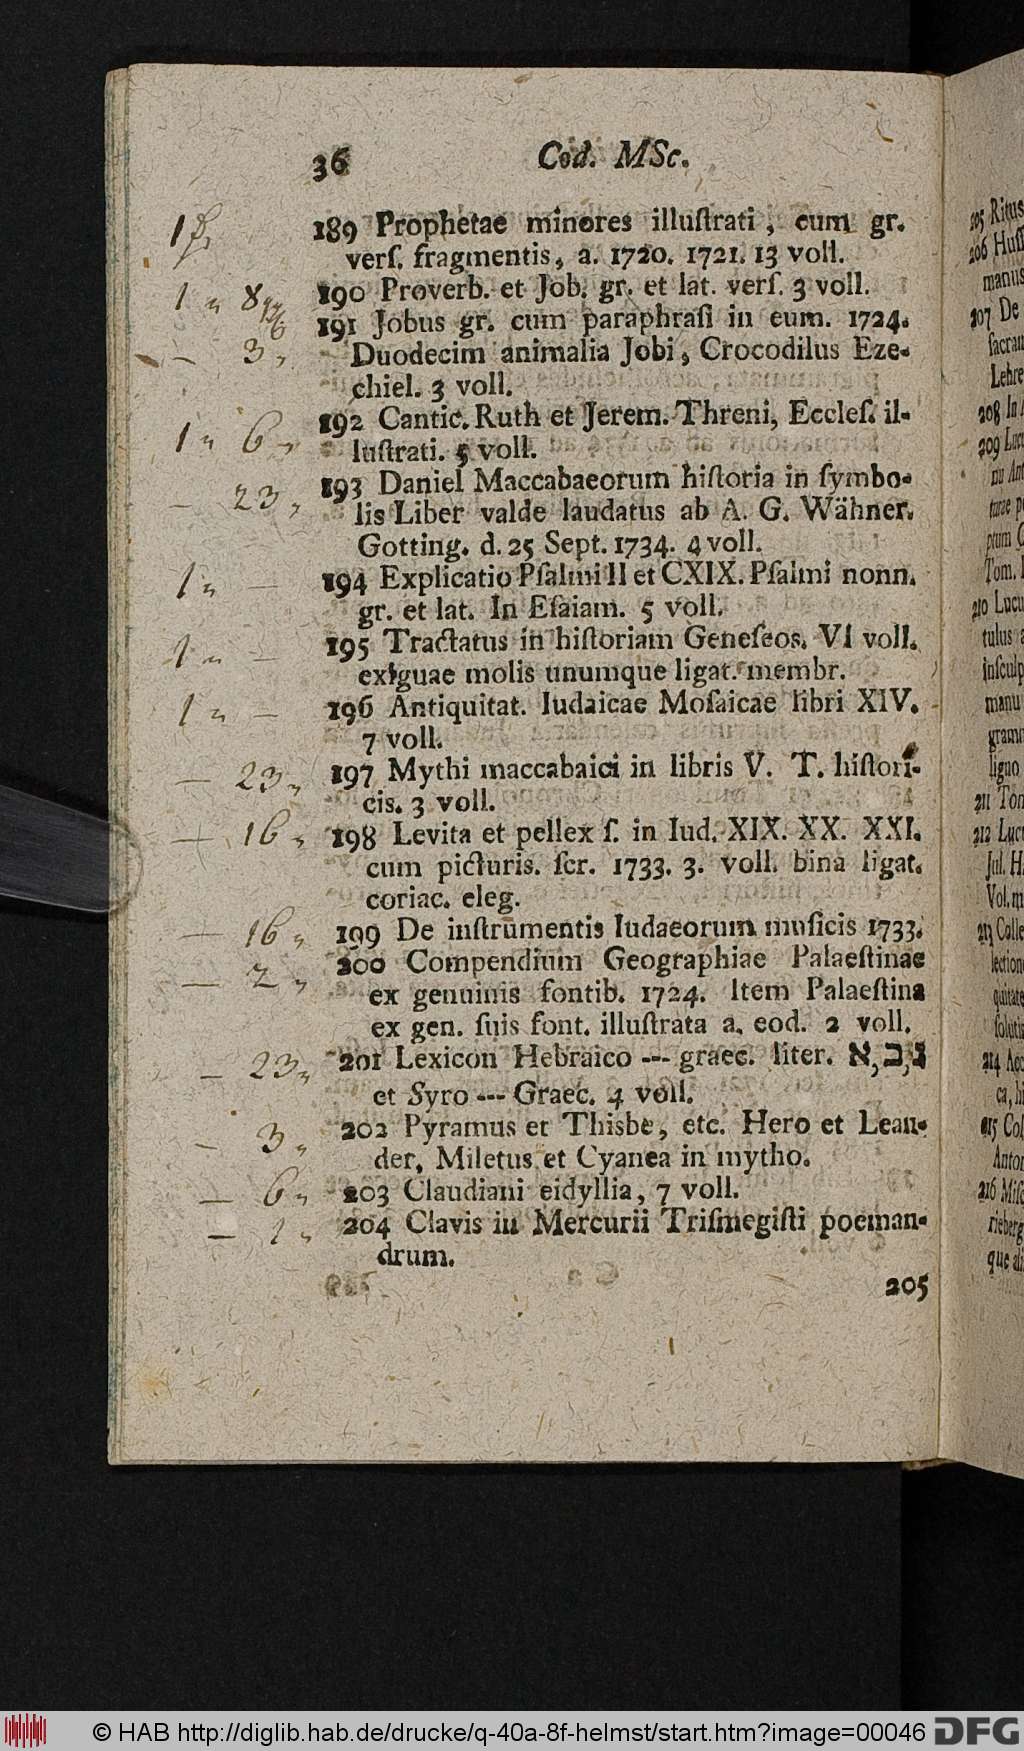 36 Cod. MSc.
1 189 Prophetae minores illuſtrati, cum gr.
verſ. fragmentis, a. 1720. 1721. 13 voll.
1 „ 8 190 Proverb. et Job. gr. et lat. verſ. 3 voll.
191 Jobus gr. cum paraphraſi in eum. 1724.
— 3 „ Duodecim animalia Jobi, Crocodilus Eze-
chiel. 3 voll.
192 Cantic. Ruth et Jerem. Threni, Eccleſ. il-
1 „ 6 „ luſtrati. 5 voll.
— 23 „ 193 Daniel Maccabaeorum hiſtoria in ſymbo-
lis Liber valde laudatus ab A. G. Wähner.
Gotting. d. 25 Sept. 1734. 4 voll.
1 „ — 194 Explicatio Pſalmi II et CXIX. Pſalmi nonn.
gr. et lat. In Eſaiam. 5 voll.
1 „ — 195 Tractatus in hiſtoriam Geneſeos. VI voll.
exiguae molis unumque ligat. membr.
1 „ — 196 Antiquitat. Iudaicae Moſaicae libri XIV.
7 voll.
— 23 „ 197 Mythi maccabaici in libris V. T. hiſtori-
cis. 3 voll.
— 16 „ 198 Levita et pellex ſ. in Iud. XIX. XX. XXI.
cum picturis. ſcr. 1733. 3. voll. bina ligat.
coriac. eleg.
— 16 „ 199 De inſtrumentis Iudaeorum muſicis 1733.
— 2 „ 200 Compendium Geographiae Palaeſtinae
ex genuinis fontib. 1724. Item Palaeſtina
ex gen. ſuis font. illuſtrata a. eod. 2 voll.
— 23 „ 201 Lexicon Hebraico --- graec. liter. א, ב, ג
et Syro --- Graec. 4 voll.
— 3 „ 202 Pyramus et Thisbe, etc. Hero et Lean-
der, Miletus et Cyanea in mytho.
— 6 „ 203 Claudiani eidyllia, 7 voll.
— 1 „ 204 Clavis in Mercurii Triſmegiſti poeman-
drum.
205
205 Ritus
206
manus
207 De
ſacram
Lehre
208 In
209
210 Lucu
tulus
inſculp
manu
gramm
ligno
211 Tom
212
Jul. H
Vol. m
213 Colle
lection
quitate
ſoluti
214
215 Col
Anton
216 Miſc
que ali
© HAB http://diglib.hab.de/drucke/q-40a-8f-helmst/start.htm?image=00046 DFG